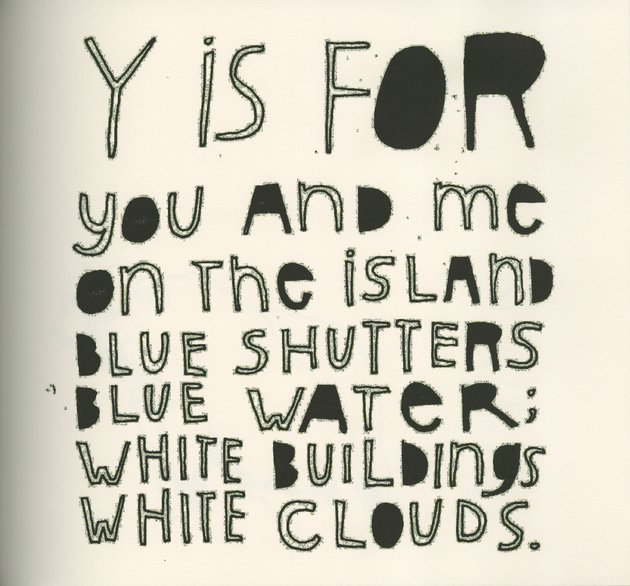 Y iS FOR
you AnD me
on The iSLAnD
BLUE SHUTTERS
BLUE WATeR;
WHITE BUILDINgS
WHITE CLOUDS.